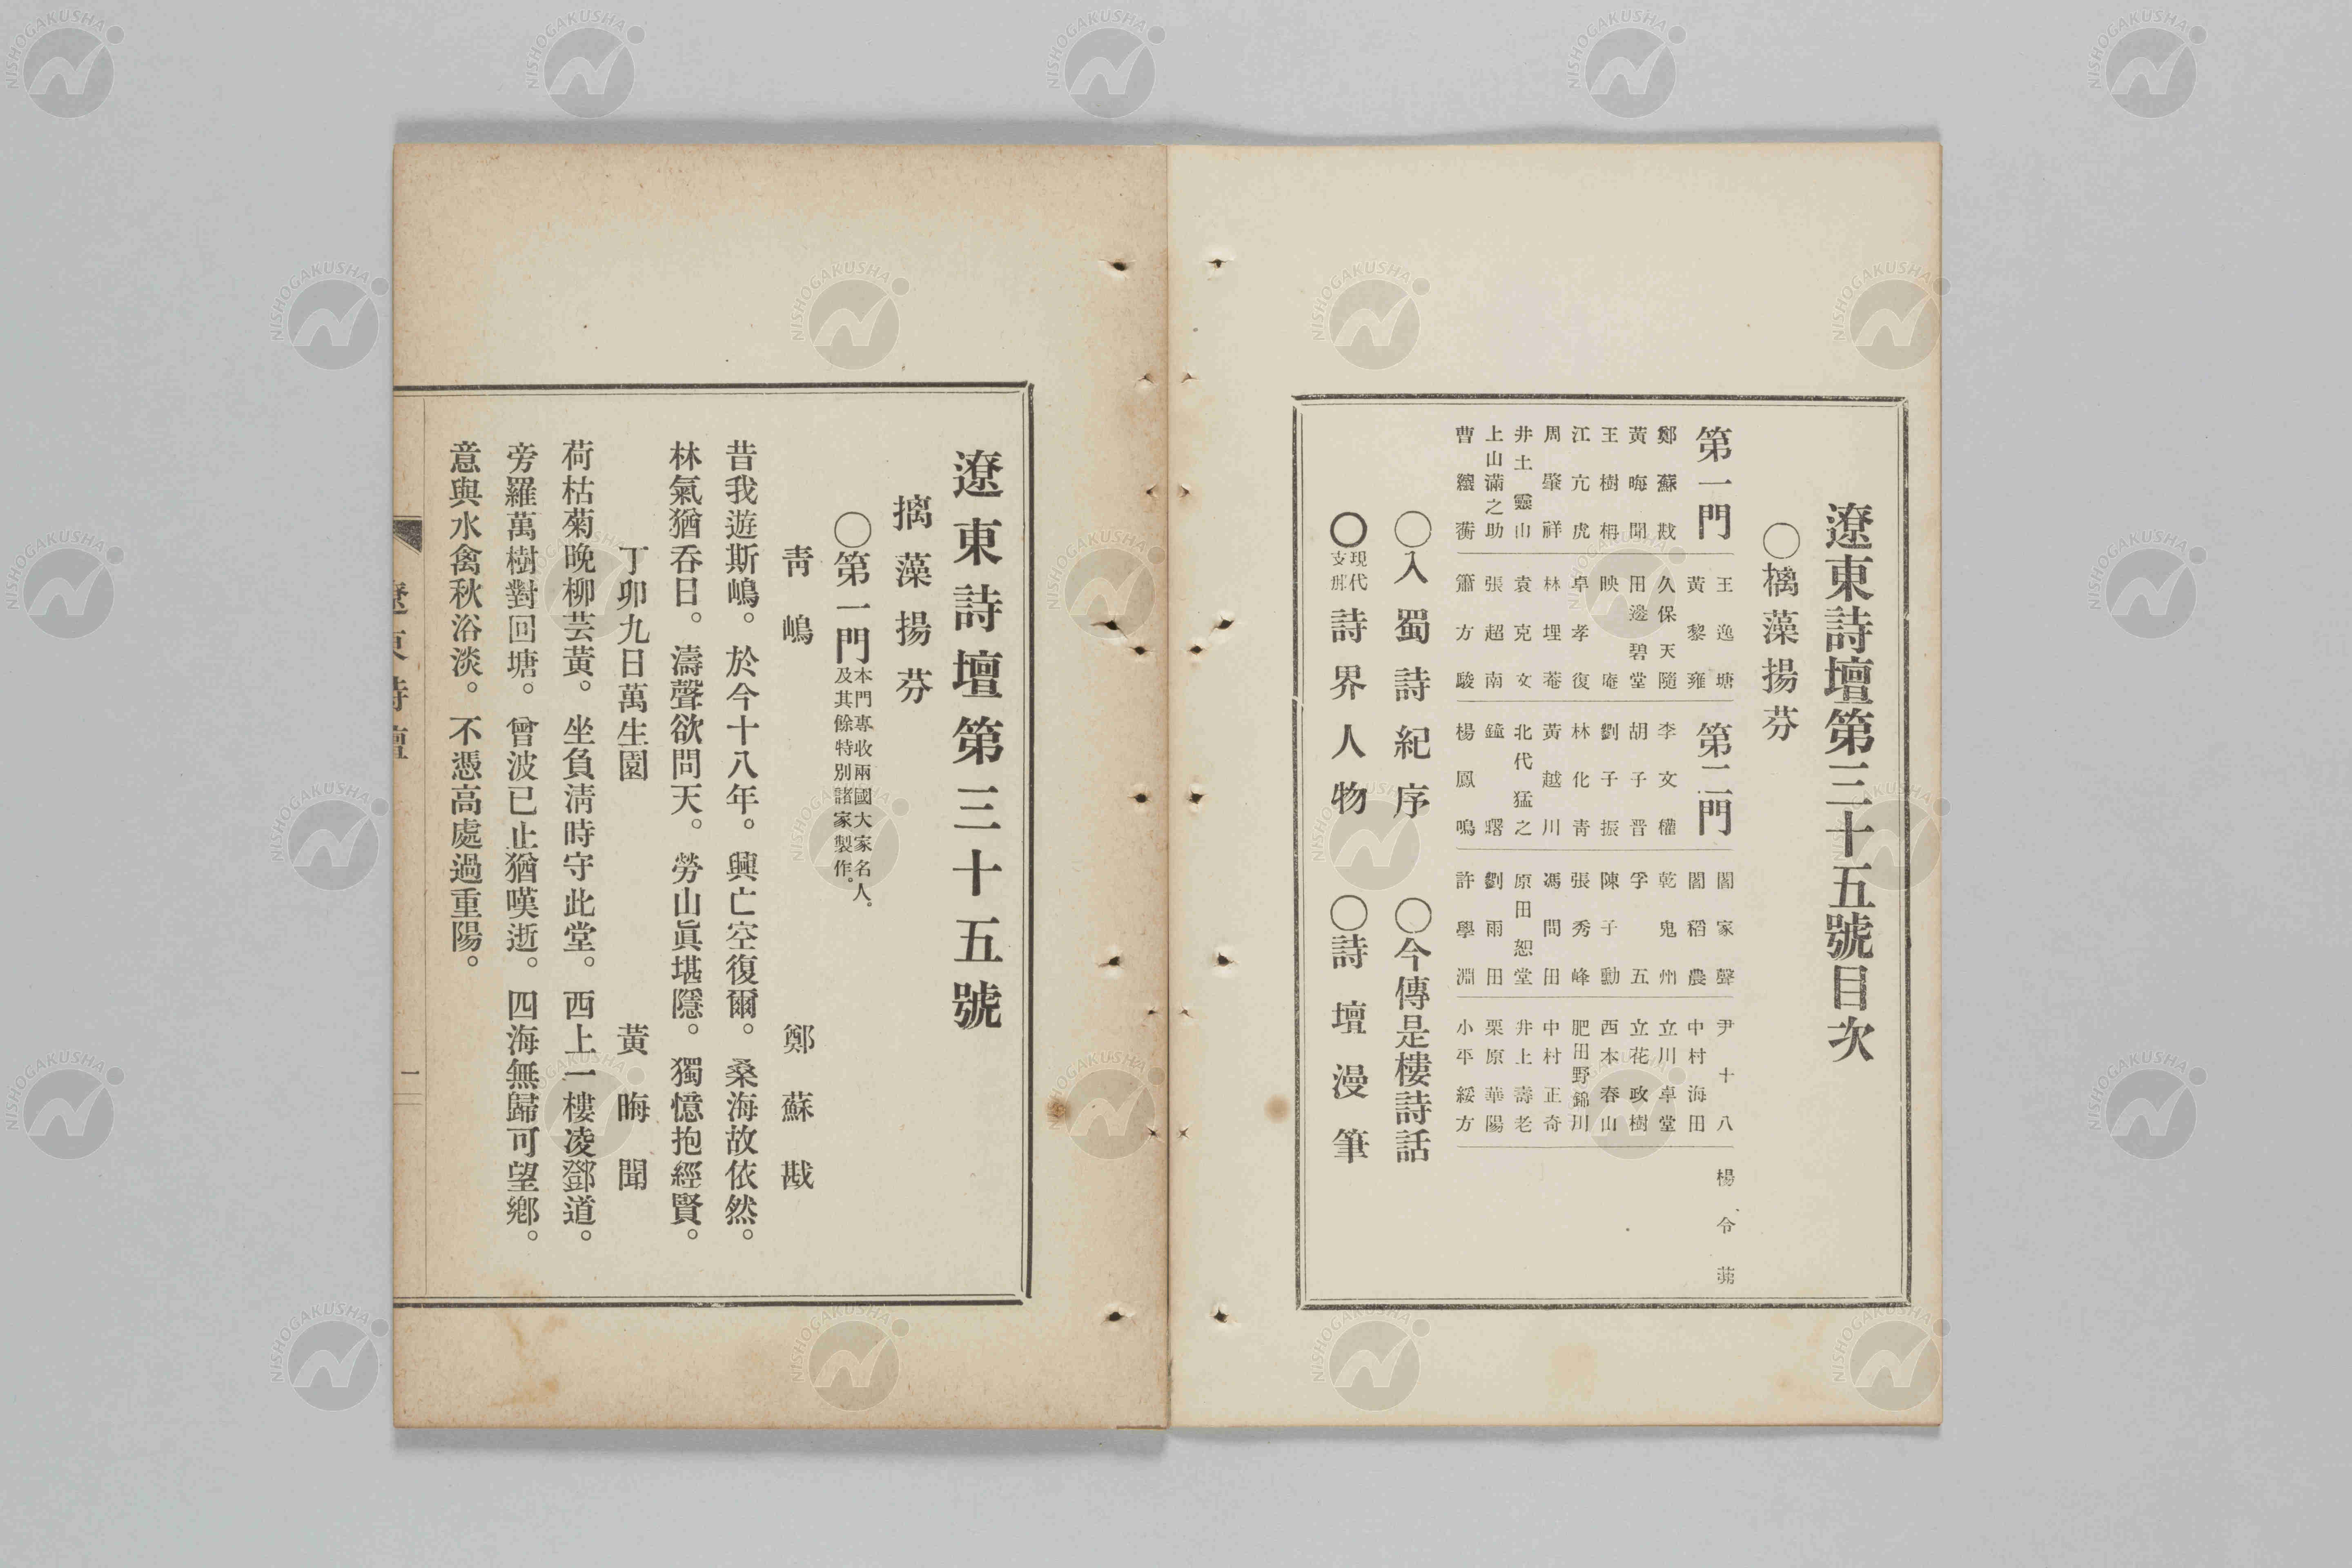 遼東詩壇第三十五號目次
○摛藻揚芬
第一門
鄭蘇戡
黃晦聞
王樹枏
江亢虎
周肇祥
井土靈山
上山滿之助
曹纕蘅
王逸塘
黃黎雍
久保天隨
田邊碧堂
映庵
卓孝復
林埋菴
袁克文
張超南
簫方駿
第二門
李文權
胡子晋
劉子振
林化青
黃越川
北代猛之
鐘曙
楊鳳鳴
閻家聲
閻稻農
乾鬼州
孚五
陳子勳
張秀峰
馮問田
原田恕堂
劉雨田
許學淵
尹十八
中村海田
立川卓堂
立花政樹
西本春山
肥田野錦川
中村正奇
井上壽老
栗原華陽
小平綏方
楊令茀
○入蜀詩紀序
○今傳是樓詩話
○現代支那詩界人物
○詩壇漫筆
遼東詩壇第三十五號
摛藻揚芬
○第一門 本門專收兩國大家名人。及其餘特別諸家製作。
靑嶋 鄭蘇戡
昔我遊斯嶋。於今十八年。興亡空復爾。桑海故依然。
林氣猶吞日。濤聲欲問天。勞山眞堪隱。獨憶抱經賢。
丁卯九日萬生園 黃晦聞
荷枯菊晚柳芸黃。坐負淸時守此堂。西上一樓凌鄧道。
旁羅萬樹對回塘。曾波已止猶嘆逝。四海無歸可望鄉。
意與水禽秋浴淡。不憑高處過重陽。
遼東詩壇
一